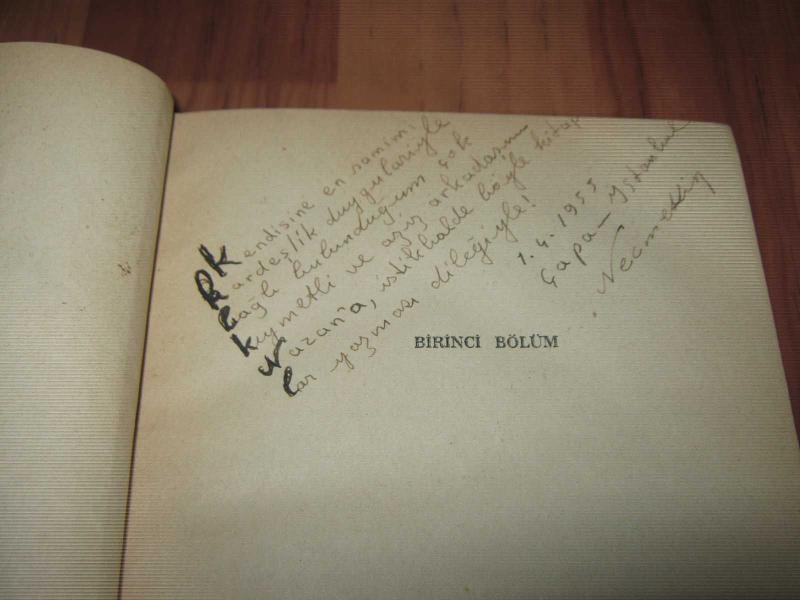 Kendisine en samimi
Kardeşlik duygulariyle
bağlı bulunduğum çok
kıymetli ve aziz arkadaşım
Nazan'a, istikbalde böyle kitap
lar yazması dileğiyle!
1.4.1955
Çapa-Ystanbul
Necmettin
BİRİNCİ BÖLÜM